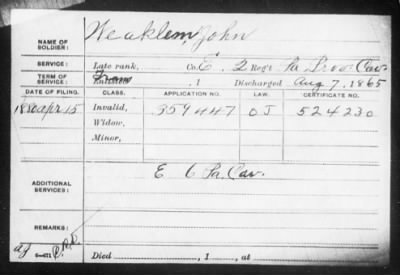 NAME OF SOLDIER: Neaklem, John
SERVICE: Late rank, Co. E, 2 Reg't Pa Prov Cav.
TERM OF SERVICE: Enlisted , 1 Discharged Aug 7, 1865
DATE OF FILING. CLASS. APPLICATION NO. LAW. CERTIFICATE NO.
1880 Apr 15 Invalid, 359447 O J 524230
Widow,
Minor,
ADDITIONAL SERVICES: E 6 Pa Cav.
REMARKS:
Died , 1 , at